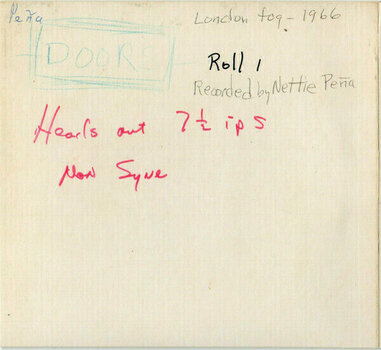 Peña
London fog - 1966
DOORS
Roll 1
Recorded by Nettie Peña
Heads out 7½ ips
Non Sync